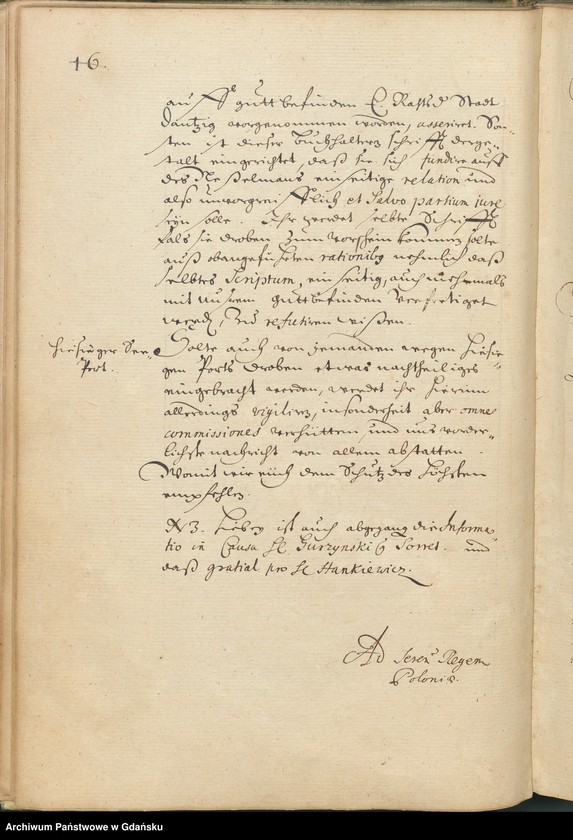 46.
auff gutt befinden E. Rahts d Stadt
Dantzig vorgenommen worden, asseriret. Son-
ten ist dieser Buchhalterey schrifft derge-
talt eingerichtet, daß sie sich fundire auff
des Neßelmans einseitige relation und
also unvorgreifflich et Salvo partium iure
seyn solle. Ihr werdet selbte Schrifft
fals sie droben zum vorschein kommen solte
auß obangeführten rationibus nehmlich daß
selbtes Scriptum, einseitig, auch niehmals
mit unsrem guttbefinden verfertiget
werd, zu refutiren wißen.
hiesieger See
Port.
Solte auch von jemanden wegen hiesie-
gen Ports droben etwas nachtheiliges
eingebracht werden, werdet ihr hierinn
allerdings vigiliren, insonderheit aber omne
commissiones verhütten, und uns vorder-
lichste nachricht von allem abstatten.
Womit wir euch dem Schutz des Höchsten
empfehlen.
NB. hiebey ist auch abgegang die Informa-
tio in Causa H. Gurzynski Sorret. und
daß gratial pro H Hankiewicz.
Ad Seren Regem
Poloniæ.
Archiwum Państwowe w Gdańsku